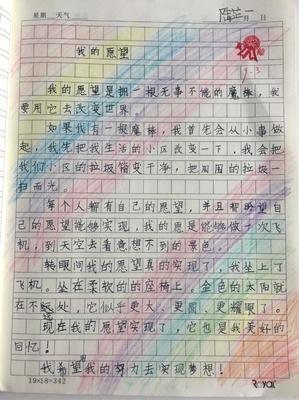 星期 天气 月 日
9.3
我的愿望
我的愿望是拥一根无事不能的魔棒，我
要用它去改变世界。
如果我有一根魔棒，我首先会从小事做
起，我先把我生活的小区改变一下，我会把
我们小区的垃圾箱变干净，把周围的垃圾一
扫而光。
每个人都有自己的愿望，并且帮助自
己的愿望能够实现，我的愿是能够做一次飞
机，到天空去看意想不到的景色。
转眼间我的愿望真的实现了，我坐上了
飞机。坐在柔软的的座椅上，金色的太阳就
在不远处，它似乎更大、更圆、更耀眼了。
现在我的愿望实现了，它也是我美好的
回忆！
我希望我的努力去实现梦想！
19×18=342
Royal